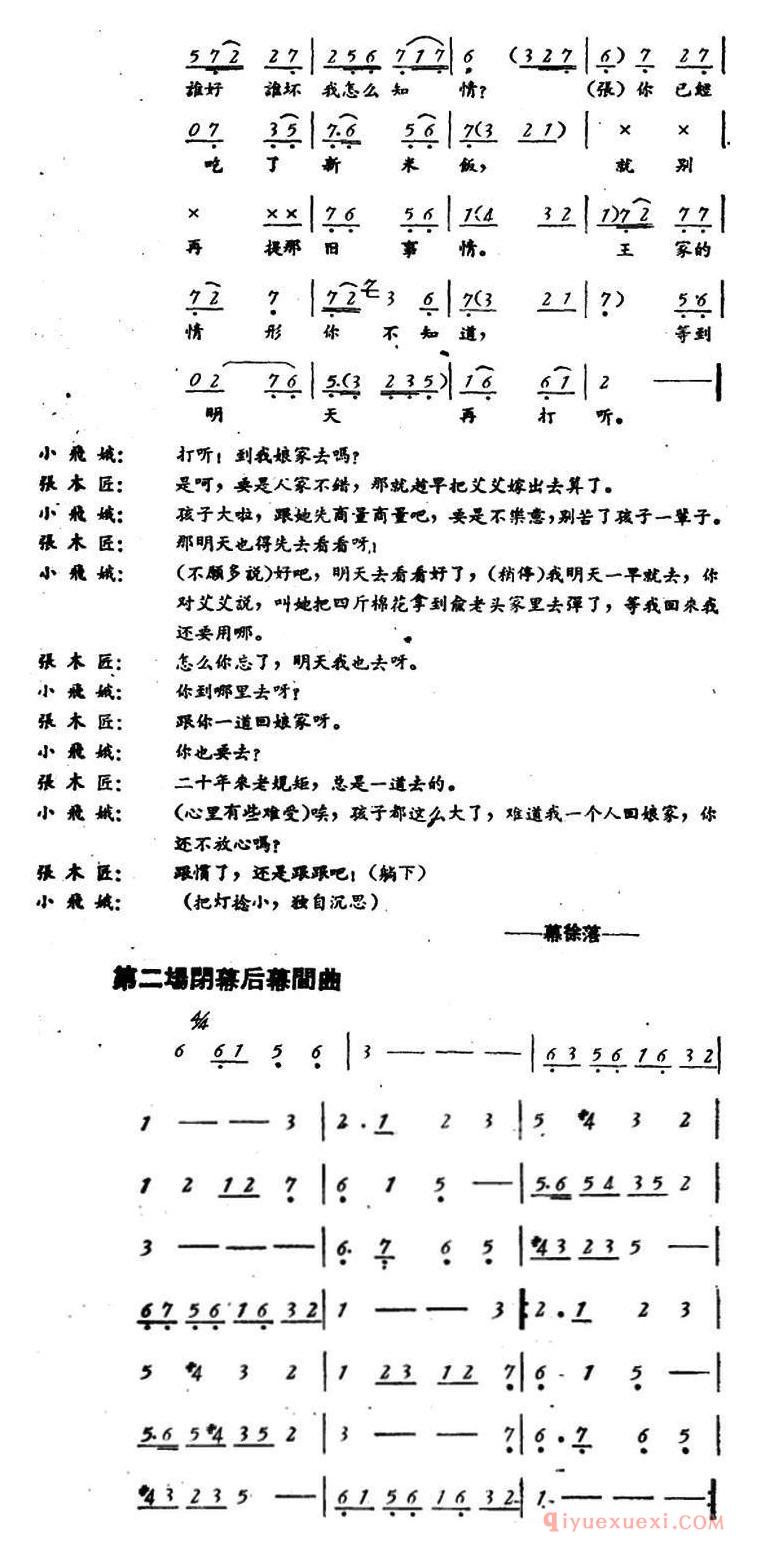 5 7 2 2 7 | 2 5 6 7 1 7 | 6 (3 2 7 | 6) 7 2 7 |
誰好 誰坏 我怎么 知 情? (張)你 已經
0 7 3 5 | 7. 6 5 6 | 7(3 2 1) | × × |
吃 了 新 米 飯, 就 别
× ×× | 7 6 5 6 | 1(4 3 2 | 1)7 2 7 7 |
再 提那 旧 事 情。 王 家的
7 2 7 | 7 2 3 6 | 7(3 2 1 | 7) 5 6 |
情 形 你 不 知 道, 等到
0 2 7 6 | 5.(3 2 3 5) | 1 6 6 1 | 2 — |
明 天 再 打 听。
小飛娥: 打听!到我娘家去嗎?
張木匠: 是呵,要是人家不錯,那就趁早把艾艾嫁出去算了。
小飛娥: 孩子大啦,跟她先商量商量吧,要是不樂意,别苦了孩子一輩子。
張木匠: 那明天也得先去看看呀!
小飛娥: (不願多説)好吧,明天去看看好了,(稍停)我明天一早就去,你
对艾艾説,叫她把四斤棉花拿到俞老头家里去彈了,等我回來我
还要用哪。
張木匠: 怎么你忘了,明天我也去呀。
小飛娥: 你到哪里去呀?
張木匠: 跟你一道回娘家呀。
小飛娥: 你也要去?
張木匠: 二十年来老規矩,总是一道去的。
小飛娥: (心里有些难受)唉,孩子都这么大了,难道我一个人回娘家,你
还不放心嗎?
張木匠: 跟慣了,还是跟跟吧!(躺下)
小飛娥: (把灯捻小,独自沉思)
——幕徐落——
第二場閉幕后幕間曲
4/4
6 6 1 5 6 | 3 — — — | 6 3 5 6 1 6 3 2 |
1 — — 3 | 2 . 1 2 3 | 5 #4 3 2 |
1 2 1 2 7 | 6 1 5 — | 5. 6 5 4 3 5 2 |
3 — — — | 6. 7 6 5 | #4 3 2 3 5 — |
6 7 5 6 1 6 3 2 | 1 — — 3 |: 2 . 1 2 3 |
5 #4 3 2 | 1 2 3 1 2 7 | 6 · 1 5 — |
5. 6 5 #4 3 5 2 | 3 — — 7 | 6 . 7 6 5 |
#4 3 2 3 5 — | 6 1 5 6 1 6 3 2 | 1 — — — :|
qiyuexuexi.com